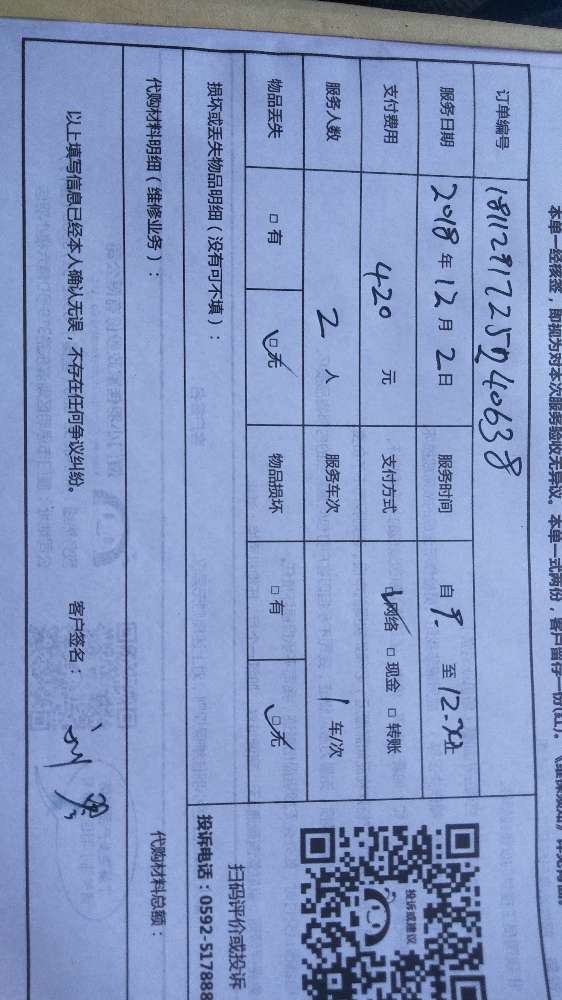 本单一经核签，即视为对本次服务验收无异议。本单一式两份，客户留存一份(红)。
订单编号
服务日期 2018 年 12 月 2 日 服务时间 自 9. 至 12.
支付费用 420 元 支付方式 □网络 □现金 □转账
服务人数 2 人 服务车次 1 车/次
物品丢失 □有 □无 物品损坏 □有 □无
损坏或丢失物品明细（没有可不填）：
代购材料明细（维修业务）： 代购材料总额：
以上填写信息已经本人确认无误，不存在任何争议纠纷。 客户签名：
投诉或建议
扫码评价或投诉
投诉电话：0592-517888